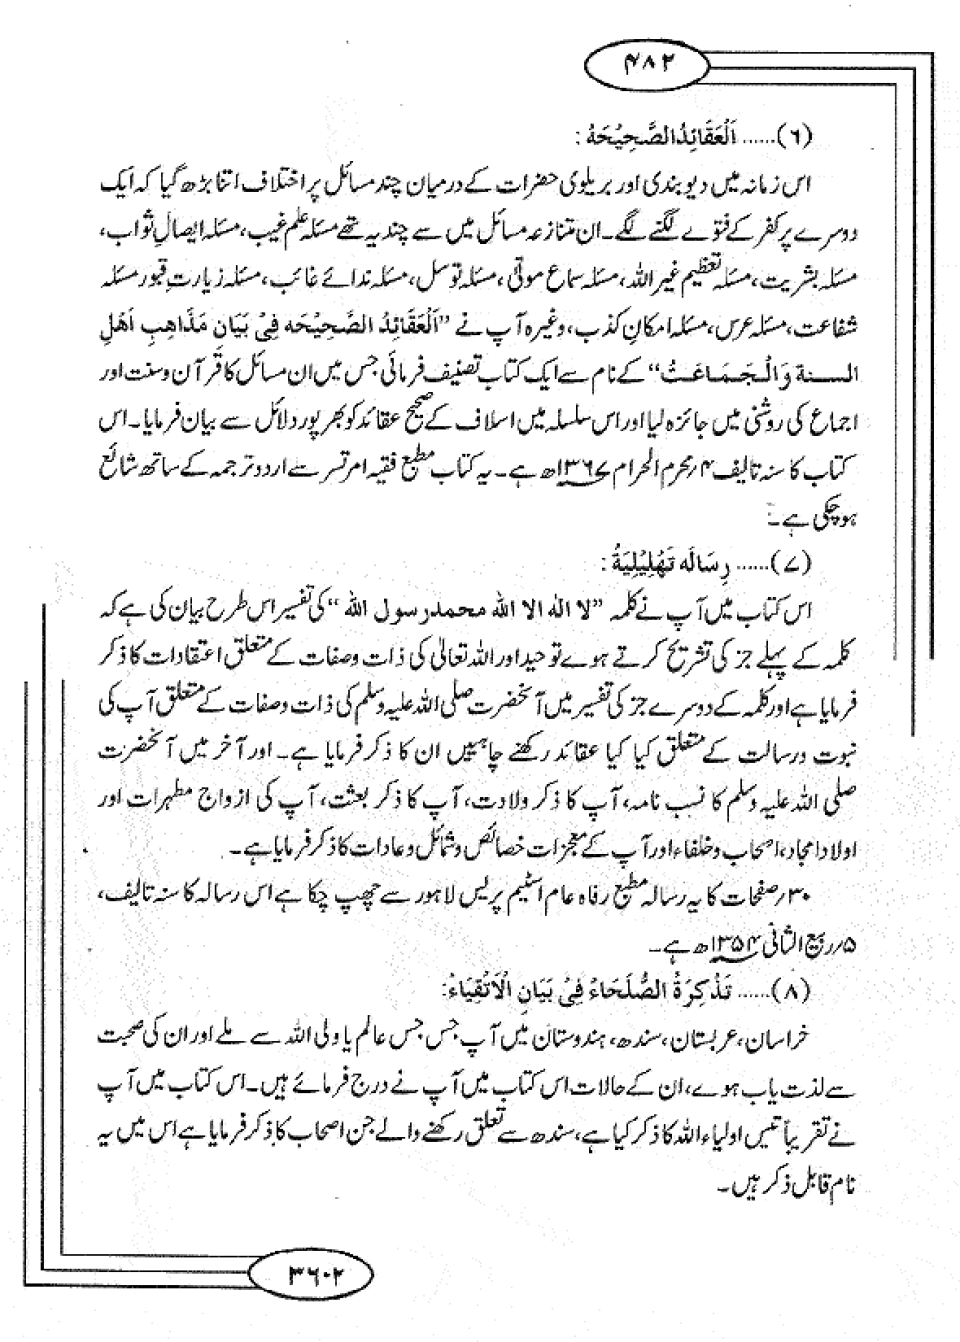 ۴۸۲
(۶)...... اَلْعَقَائِدُ الصَّحِیْحَهُ :
اس زمانہ میں دیوبندی اور بریلوی حضرات کے درمیان چند مسائل پر اختلاف اتنا بڑھ گیا کہ ایک
دوسرے پر کفر کے فتوے لگنے لگے۔ ان متنازعہ مسائل میں سے چند یہ تھے مسئلہ علم غیب، مسئلہ ایصالِ ثواب،
مسئلہ بشریت، مسئلہ تعظیم غیر اللہ، مسئلہ سماع موتٰی، مسئلہ توسل، مسئلہ ندائے غائب، مسئلہ زیارتِ قبور مسئلہ
شفاعت، مسئلہ عرس، مسئلہ امکانِ کذب، وغیرہ آپ نے ”اَلْعَقَائِدُ الصَّحِیْحَه فِیْ بَیَان مَذَاهِبِ اَهْلِ
السنة وَالْجَمَاعَتُ“ کے نام سے ایک کتاب تصنیف فرمائی جس میں ان مسائل کا قرآن و سنت اور
اجماع کی روشنی میں جائزہ لیا اور اس سلسلہ میں اسلاف کے صحیح عقائد کو بھرپور دلائل سے بیان فرمایا۔ اس
کتاب کا سنہ تالیف ۴؍محرم الحرام ۱۳۶۷ھ ہے۔ یہ کتاب مطبع فقیہ امرتسر سے اردو ترجمہ کے ساتھ شائع
ہوچکی ہے۔
(۷)...... رِسَالَه تَهْلِیْلِیَةُ :
اس کتاب میں آپ نے کلمہ ”لا اله الا الله محمد رسول الله“ کی تفسیر اس طرح بیان کی ہے کہ
کلمہ کے پہلے جز کی تشریح کرتے ہوے توحید اور اللہ تعالیٰ کی ذات و صفات کے متعلق اعتقادات کا ذکر
فرمایا ہے اور کلمہ کے دوسرے جز کی تفسیر میں آنحضرت صلی اللہ علیہ وسلم کی ذات و صفات کے متعلق آپ کی
نبوت و رسالت کے متعلق کیا کیا عقائد رکھنے چاہئیں ان کا ذکر فرمایا ہے۔ اور آخر میں آنحضرت
صلی اللہ علیہ وسلم کا نسب نامہ، آپ کا ذکر ولادت، آپ کا ذکر بعثت، آپ کی ازواج مطہرات اور
اولاد امجاد، اصحاب و خلفاء اور آپ کے معجزات خصائص و شمائل و عادات کا ذکر فرمایا ہے۔
۳۰؍صفحات کا یہ رسالہ مطبع رفاہ عام اسٹیم پریس لاہور سے چھپ چکا ہے اس رسالہ کا سنہ تالیف،
۵؍ربیع الثانی ۱۳۵۴ھ ہے۔
(۸)...... تَذْکِرَةُ الصُّلَحَاءُ فِیْ بَیَانِ الْاَتْقِیَاءُ:
خراسان، عربستان، سندھ، ہندوستان میں آپ جس جس عالم یا ولی اللہ سے ملے اور ان کی صحبت
سے لذت یاب ہوے، ان کے حالات اس کتاب میں آپ نے درج فرمائے ہیں۔ اس کتاب میں آپ
نے تقریباً تیس اولیاء اللہ کا ذکر کیا ہے، سندھ سے تعلق رکھنے والے جن اصحاب کا ذکر فرمایا ہے اس میں یہ
نام قابل ذکر ہیں۔
۳۶۰۲